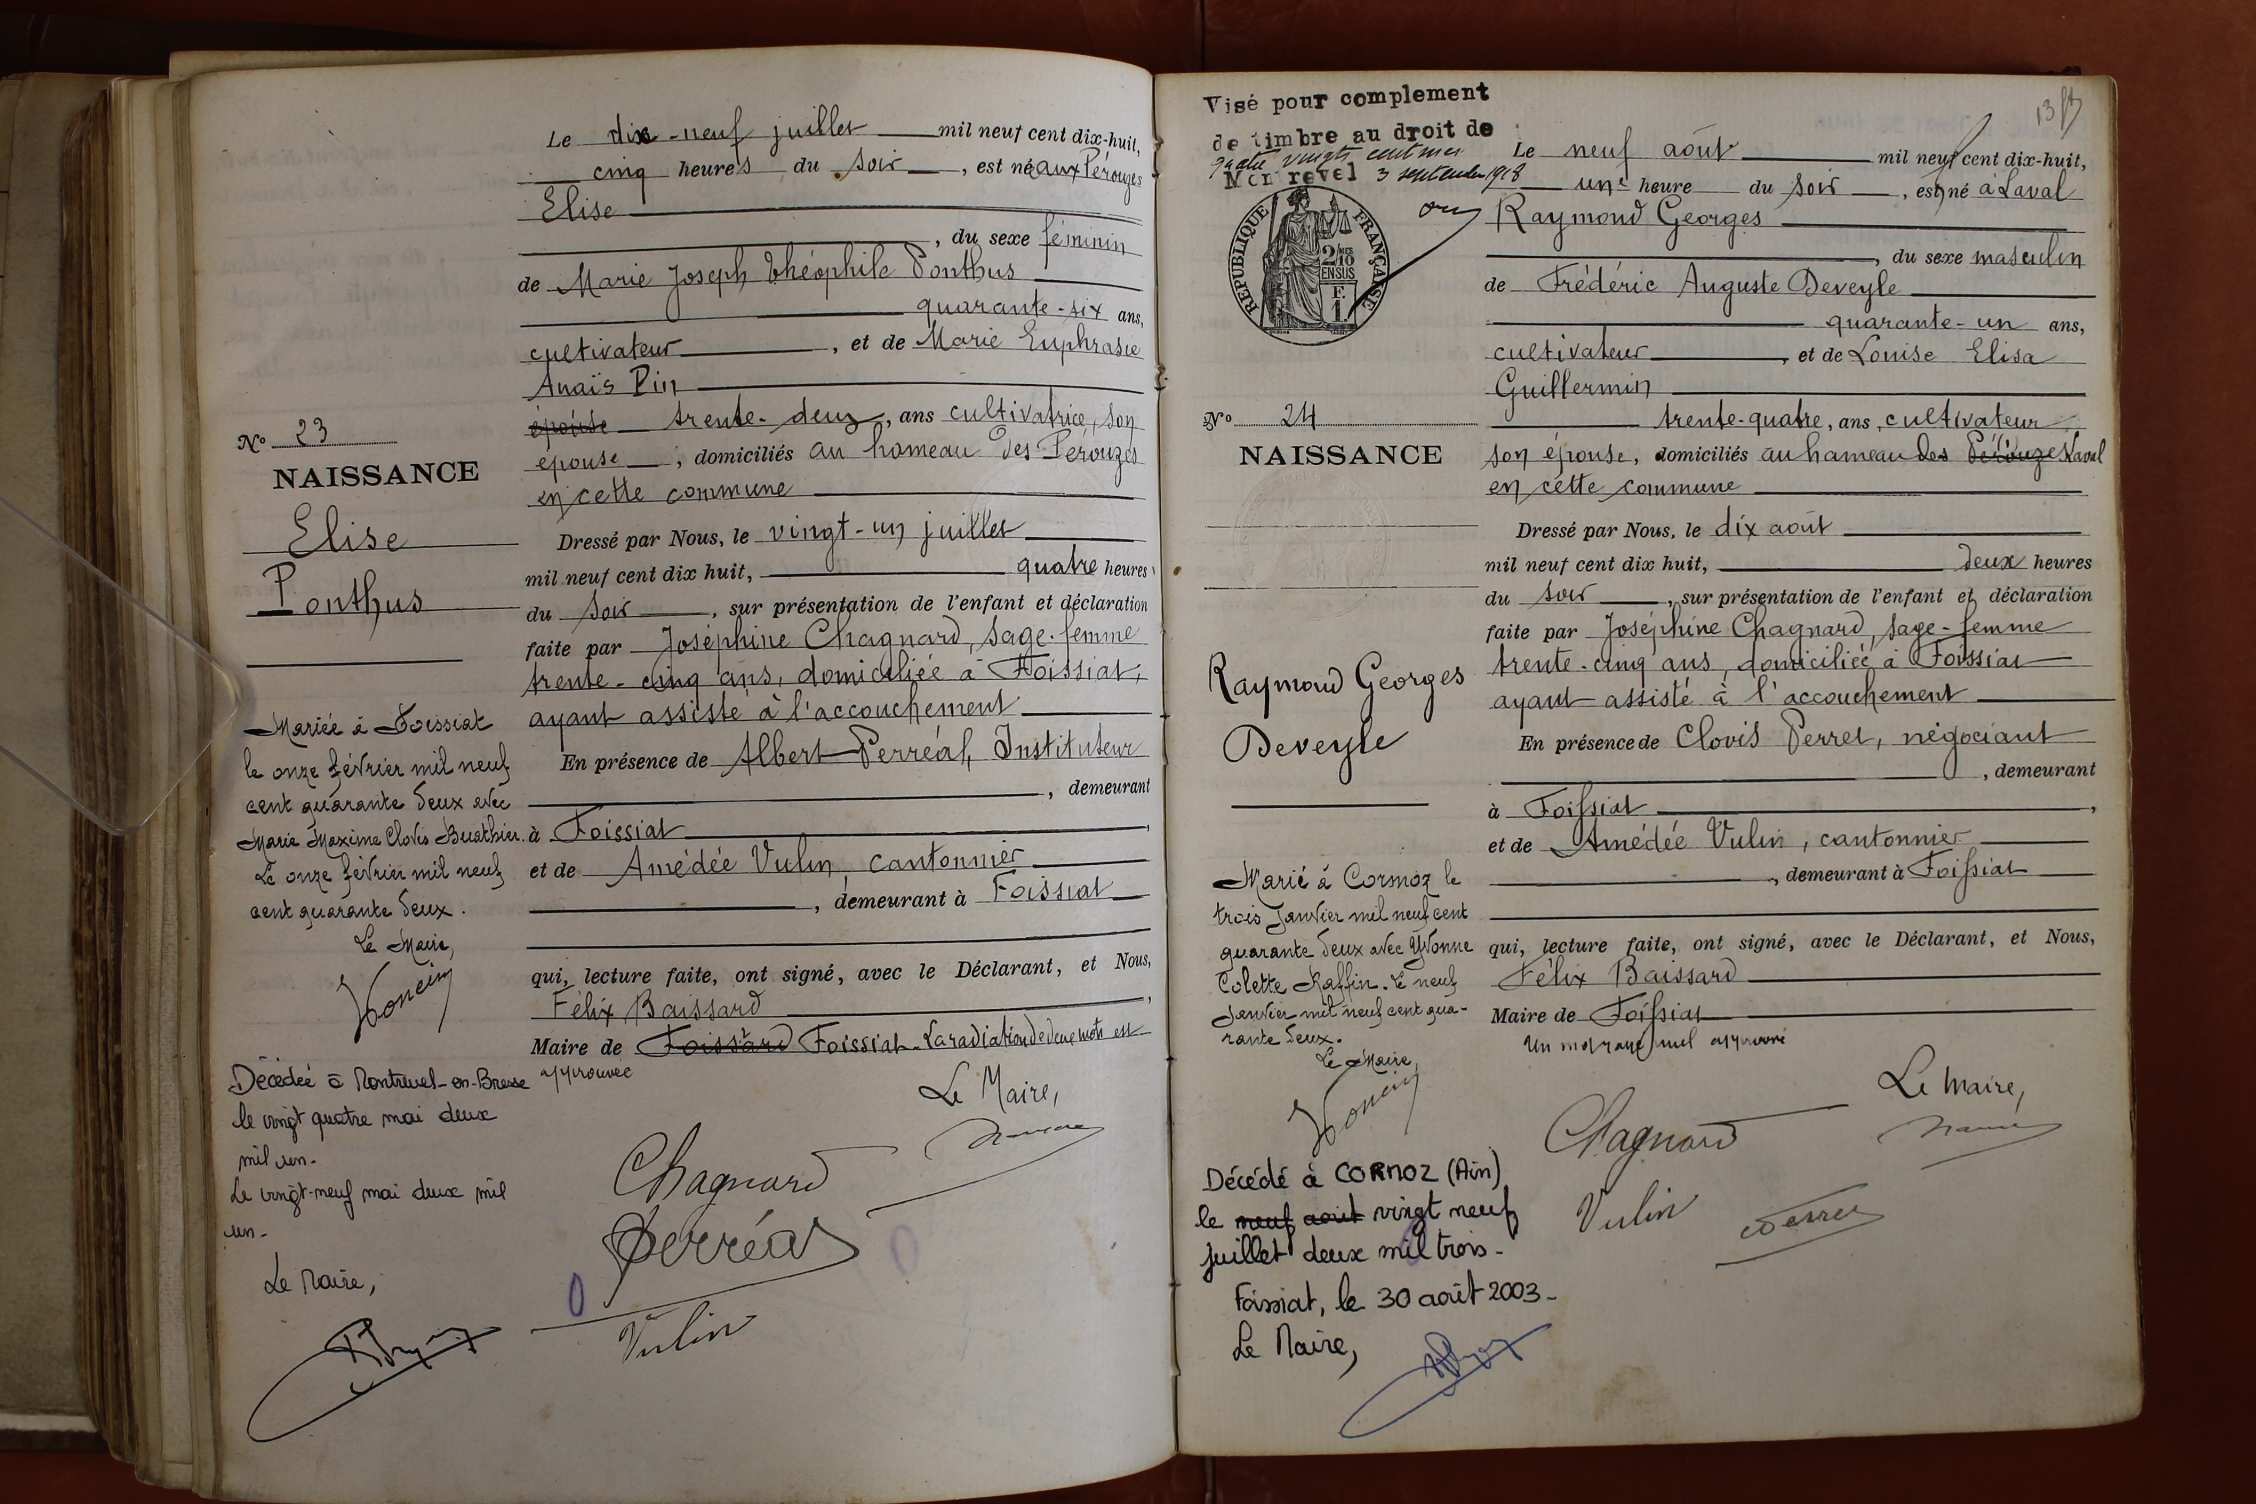 Le dix-neuf juillet mil neuf cent dix-huit,
cinq heures du soir, est né aux Pérouzes
Elise
, du sexe féminin
de Marie Joseph Théophile Ponthus
quarante-six ans,
cultivateur, et de Marie Euphrasie
Anaïs Pin
épouse trente-deux, ans cultivatrice, son
épouse, domiciliés au hameau des Pérouzes
en cette commune
No 23
NAISSANCE
Elise
Ponthus
Dressé par Nous, le vingt-un juillet
mil neuf cent dix huit, quatre heures
du soir, sur présentation de l'enfant et déclaration
faite par Joséphine Chagnard, sage-femme
trente-cinq ans, domiciliée à Foissiat,
ayant assisté à l'accouchement
En présence de Albert Perréal, Instituteur
, demeurant
à Foissiat,
et de Amédée Vulin, cantonnier
, demeurant à Foissiat
qui, lecture faite, ont signé, avec le Déclarant, et Nous,
Félix Baissard,
Maire de Foissard Foissiat. La radiation de deux mots est
approuvée
Le Maire,
Chagnard
Perréal
Vulin
Mariée à Foissiat
le onze février mil neuf
cent quarante deux avec
Marie Maxime Clovis Buathier.
Le onze février mil neuf
cent quarante deux.
Le Maire,
Décédée à Montrevel-en-Bresse
le vingt quatre mai deux
mil un-
Le vingt-neuf mai deux mil
un-
Le Maire,
13
Visé pour complement
de timbre au droit de
quatre vingts centimes
Montrevel 3 septembre 1918
REPUBLIQUE FRANÇAISE
2/10
EN SUS
F.
1.
Le neuf août mil neuf cent dix-huit,
une heure du soir, est né à Laval
Raymond Georges
, du sexe masculin
de Frédéric Auguste Deveyle
quarante-un ans,
cultivateur, et de Louise Elisa
Guillermin
trente-quatre, ans, cultivateur
son épouse, domiciliés au hameau des Pérouzes Laval
en cette commune
No 24
NAISSANCE
Raymond Georges
Deveyle
Dressé par Nous, le dix août
mil neuf cent dix huit, deux heures
du soir, sur présentation de l'enfant et déclaration
faite par Joséphine Chagnard, sage-femme
trente-cinq ans, domiciliée à Foissiat
ayant assisté à l'accouchement
En présence de Clovis Perret, négociant
, demeurant
à Foissiat,
et de Amédée Vulin, cantonnier
, demeurant à Foissiat
qui, lecture faite, ont signé, avec le Déclarant, et Nous,
Félix Baissard
Maire de Foissiat
Un mot rayé nul approuvé
Le Maire,
Chagnard
Vulin
Perret
Marié à Cormoz le
trois Janvier mil neuf cent
quarante deux avec Yvonne
Colette Raffin. Le neuf
Janvier mil neuf cent qua-
rante deux.
Le Maire,
Décédé à CORMOZ (Ain)
le neuf août vingt neuf
juillet deux mil trois-
Foissiat, le 30 août 2003-
Le Maire,